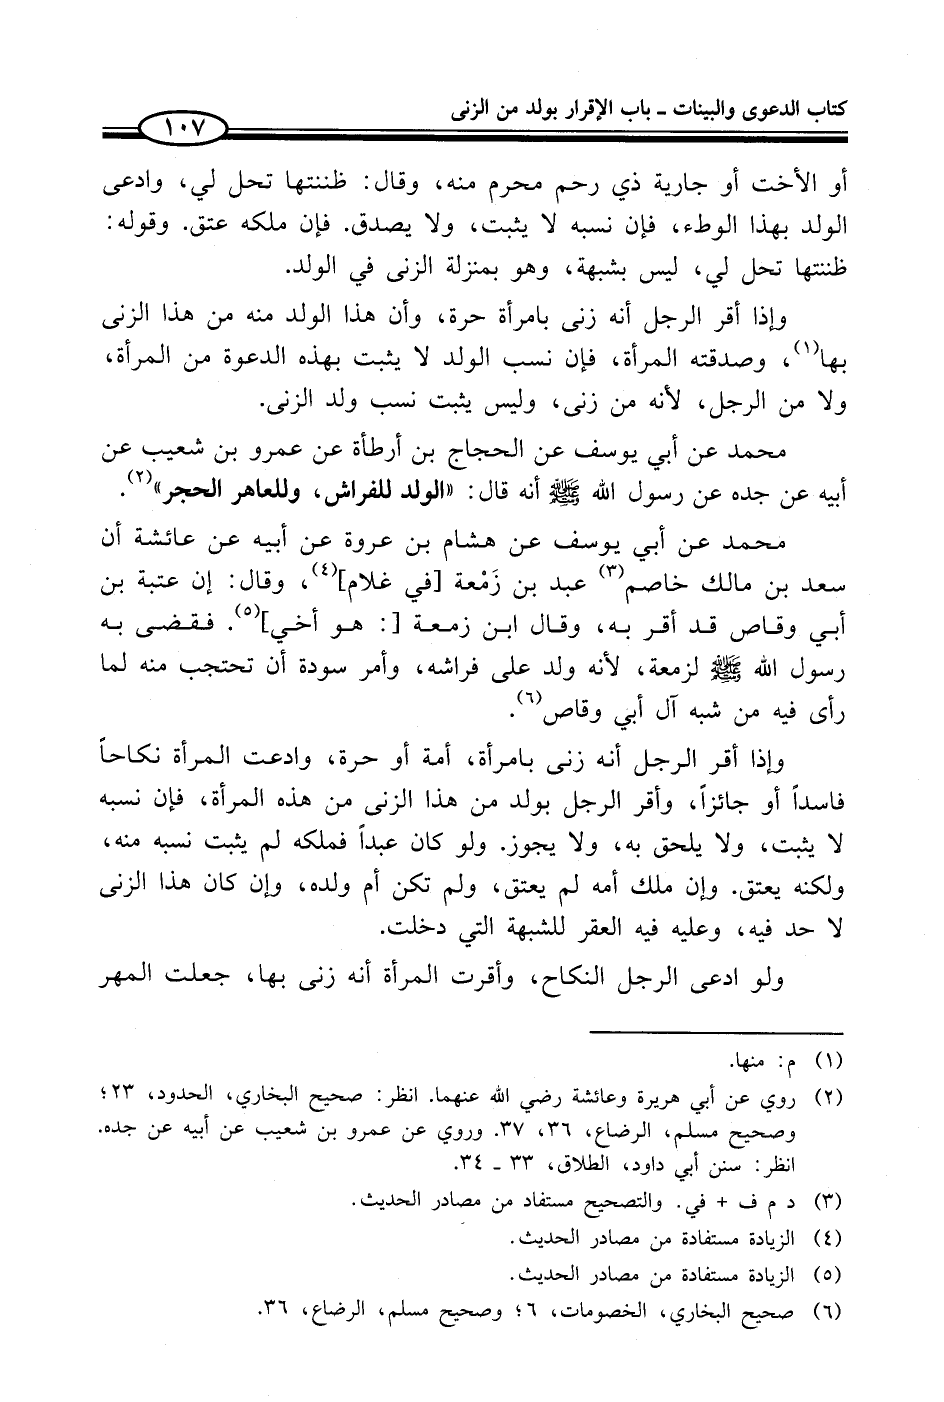 كتاب الدعوى والبينات - باب الإقرار بولد من الزنى
١٠٧
أو الأخت أو جارية ذي رحم محرم منه، وقال: ظننتها تحل لي، وادعى
الولد بهذا الوطء، فإن نسبه لا يثبت، ولا يصدق. فإن ملكه عتق. وقوله:
ظننتها تحل لي، ليس بشبهة، وهو بمنزلة الزنى في الولد.
وإذا أقر الرجل أنه زنى بامرأة حرة، وأن هذا الولد منه من هذا الزنى
بها(١)، وصدقته المرأة، فإن نسب الولد لا يثبت بهذه الدعوة من المرأة،
ولا من الرجل، لأنه من زنى، وليس يثبت نسب ولد الزنى.
محمد عن أبي يوسف عن الحجاج بن أرطأة عن عمرو بن شعيب عن
أبيه عن جده عن رسول الله ﷺ أنه قال: «الولد للفراش، وللعاهر الحجر»(٢).
محمد عن أبي يوسف عن هشام بن عروة عن أبيه عن عائشة أن
سعد بن مالك خاصم(٣) عبد بن زَمْعة [في غلام](٤)، وقال: إن عتبة بن
أبي وقاص قد أقر به، وقال ابن زمعة [: هو أخي](٥). فقضى به
رسول الله ﷺ لزمعة، لأنه ولد على فراشه، وأمر سودة أن تحتجب منه لما
رأى فيه من شبه آل أبي وقاص(٦).
وإذا أقر الرجل أنه زنى بامرأة، أمة أو حرة، وادعت المرأة نكاحاً
فاسداً أو جائزاً، وأقر الرجل بولد من هذا الزنى من هذه المرأة، فإن نسبه
لا يثبت، ولا يلحق به، ولا يجوز. ولو كان عبداً فملكه لم يثبت نسبه منه،
ولكنه يعتق. وإن ملك أمه لم يعتق، ولم تكن أم ولده، وإن كان هذا الزنى
لا حد فيه، وعليه فيه العقر للشبهة التي دخلت.
ولو ادعى الرجل النكاح، وأقرت المرأة أنه زنى بها، جعلت المهر
(١) م: منها.
(٢) روي عن أبي هريرة وعائشة رضي الله عنهما. انظر: صحيح البخاري، الحدود، ٢٣؛
وصحيح مسلم، الرضاع، ٣٦، ٣٧. وروي عن عمرو بن شعيب عن أبيه عن جده.
انظر: سنن أبي داود، الطلاق، ٣٣ - ٣٤.
(٣) د م ف + في. والتصحيح مستفاد من مصادر الحديث.
(٤) الزيادة مستفادة من مصادر الحديث.
(٥) الزيادة مستفادة من مصادر الحديث.
(٦) صحيح البخاري، الخصومات، ٦؛ وصحيح مسلم، الرضاع، ٣٦.